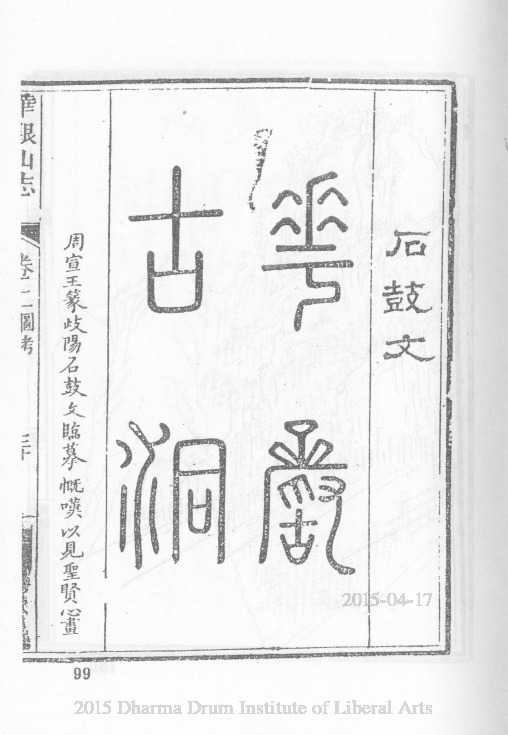 石鼓文
華嚴
古洞
周宣王篆歧陽石鼓文臨摹慨嘆以見聖賢心畫
華銀山志
圖考
三十
99
2015-04-17
2015 Dharma Drum Institute of Liberal Arts